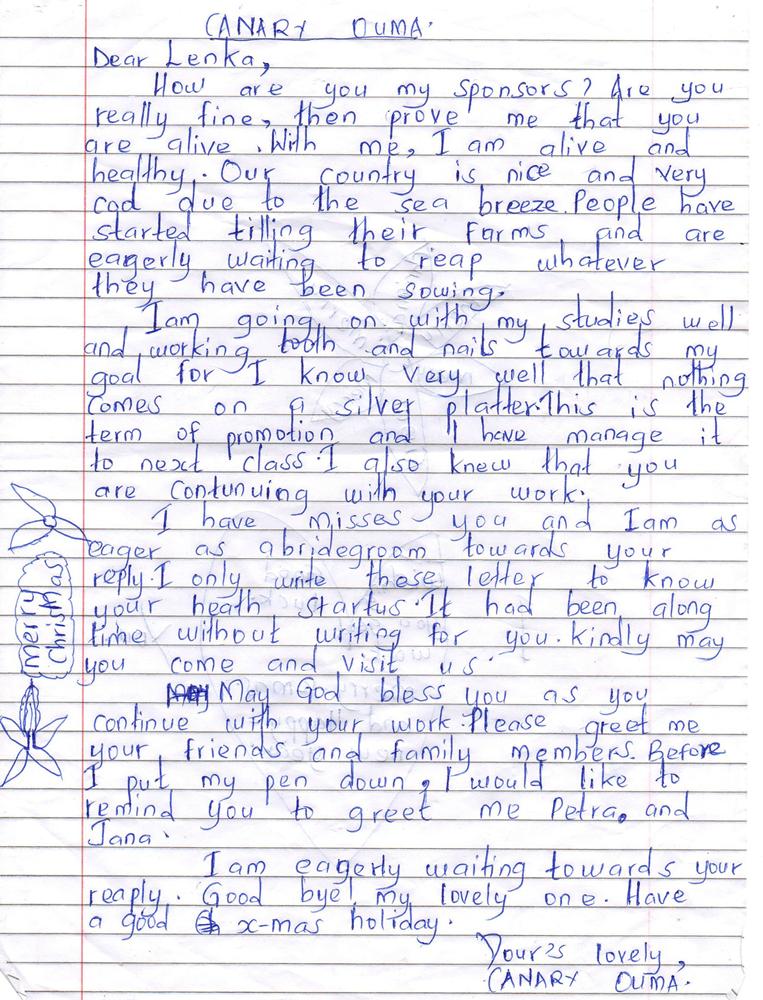 CANARY OUMA.
Dear Lenka,
How are you my sponsors? Are you
really fine, then prove me that you
are alive. With me, I am alive and
healthy. Our country is nice and very
cod due to the sea breeze. People have
started tilling their farms and are
eagerly waiting to reap whatever
they have been sowing.
I am going on with my studies well
and working tooth and nails towards my
goal for I know very well that nothing
comes on a silver platter. This is the
term of promotion and I have manage it
to next class. I also knew that you
are contunuing with your work.
I have misses you and I am as
eager as abridegroom towards your
reply. I only write these letter to know
your heath startus. It had been along
time without writing for you. kindly may
you come and visit us.
Merry
ChrisMas
May God bless you as you
continue with your work. Please greet me
your friends and family members. Before
I put my pen down, I would like to
remind you to greet me Petra, and
Jana.
I am eagerly waiting towards your
reaply. Good bye! my lovely one. Have
a good x-mas holiday.
Your's lovely,
CANARY OUMA.